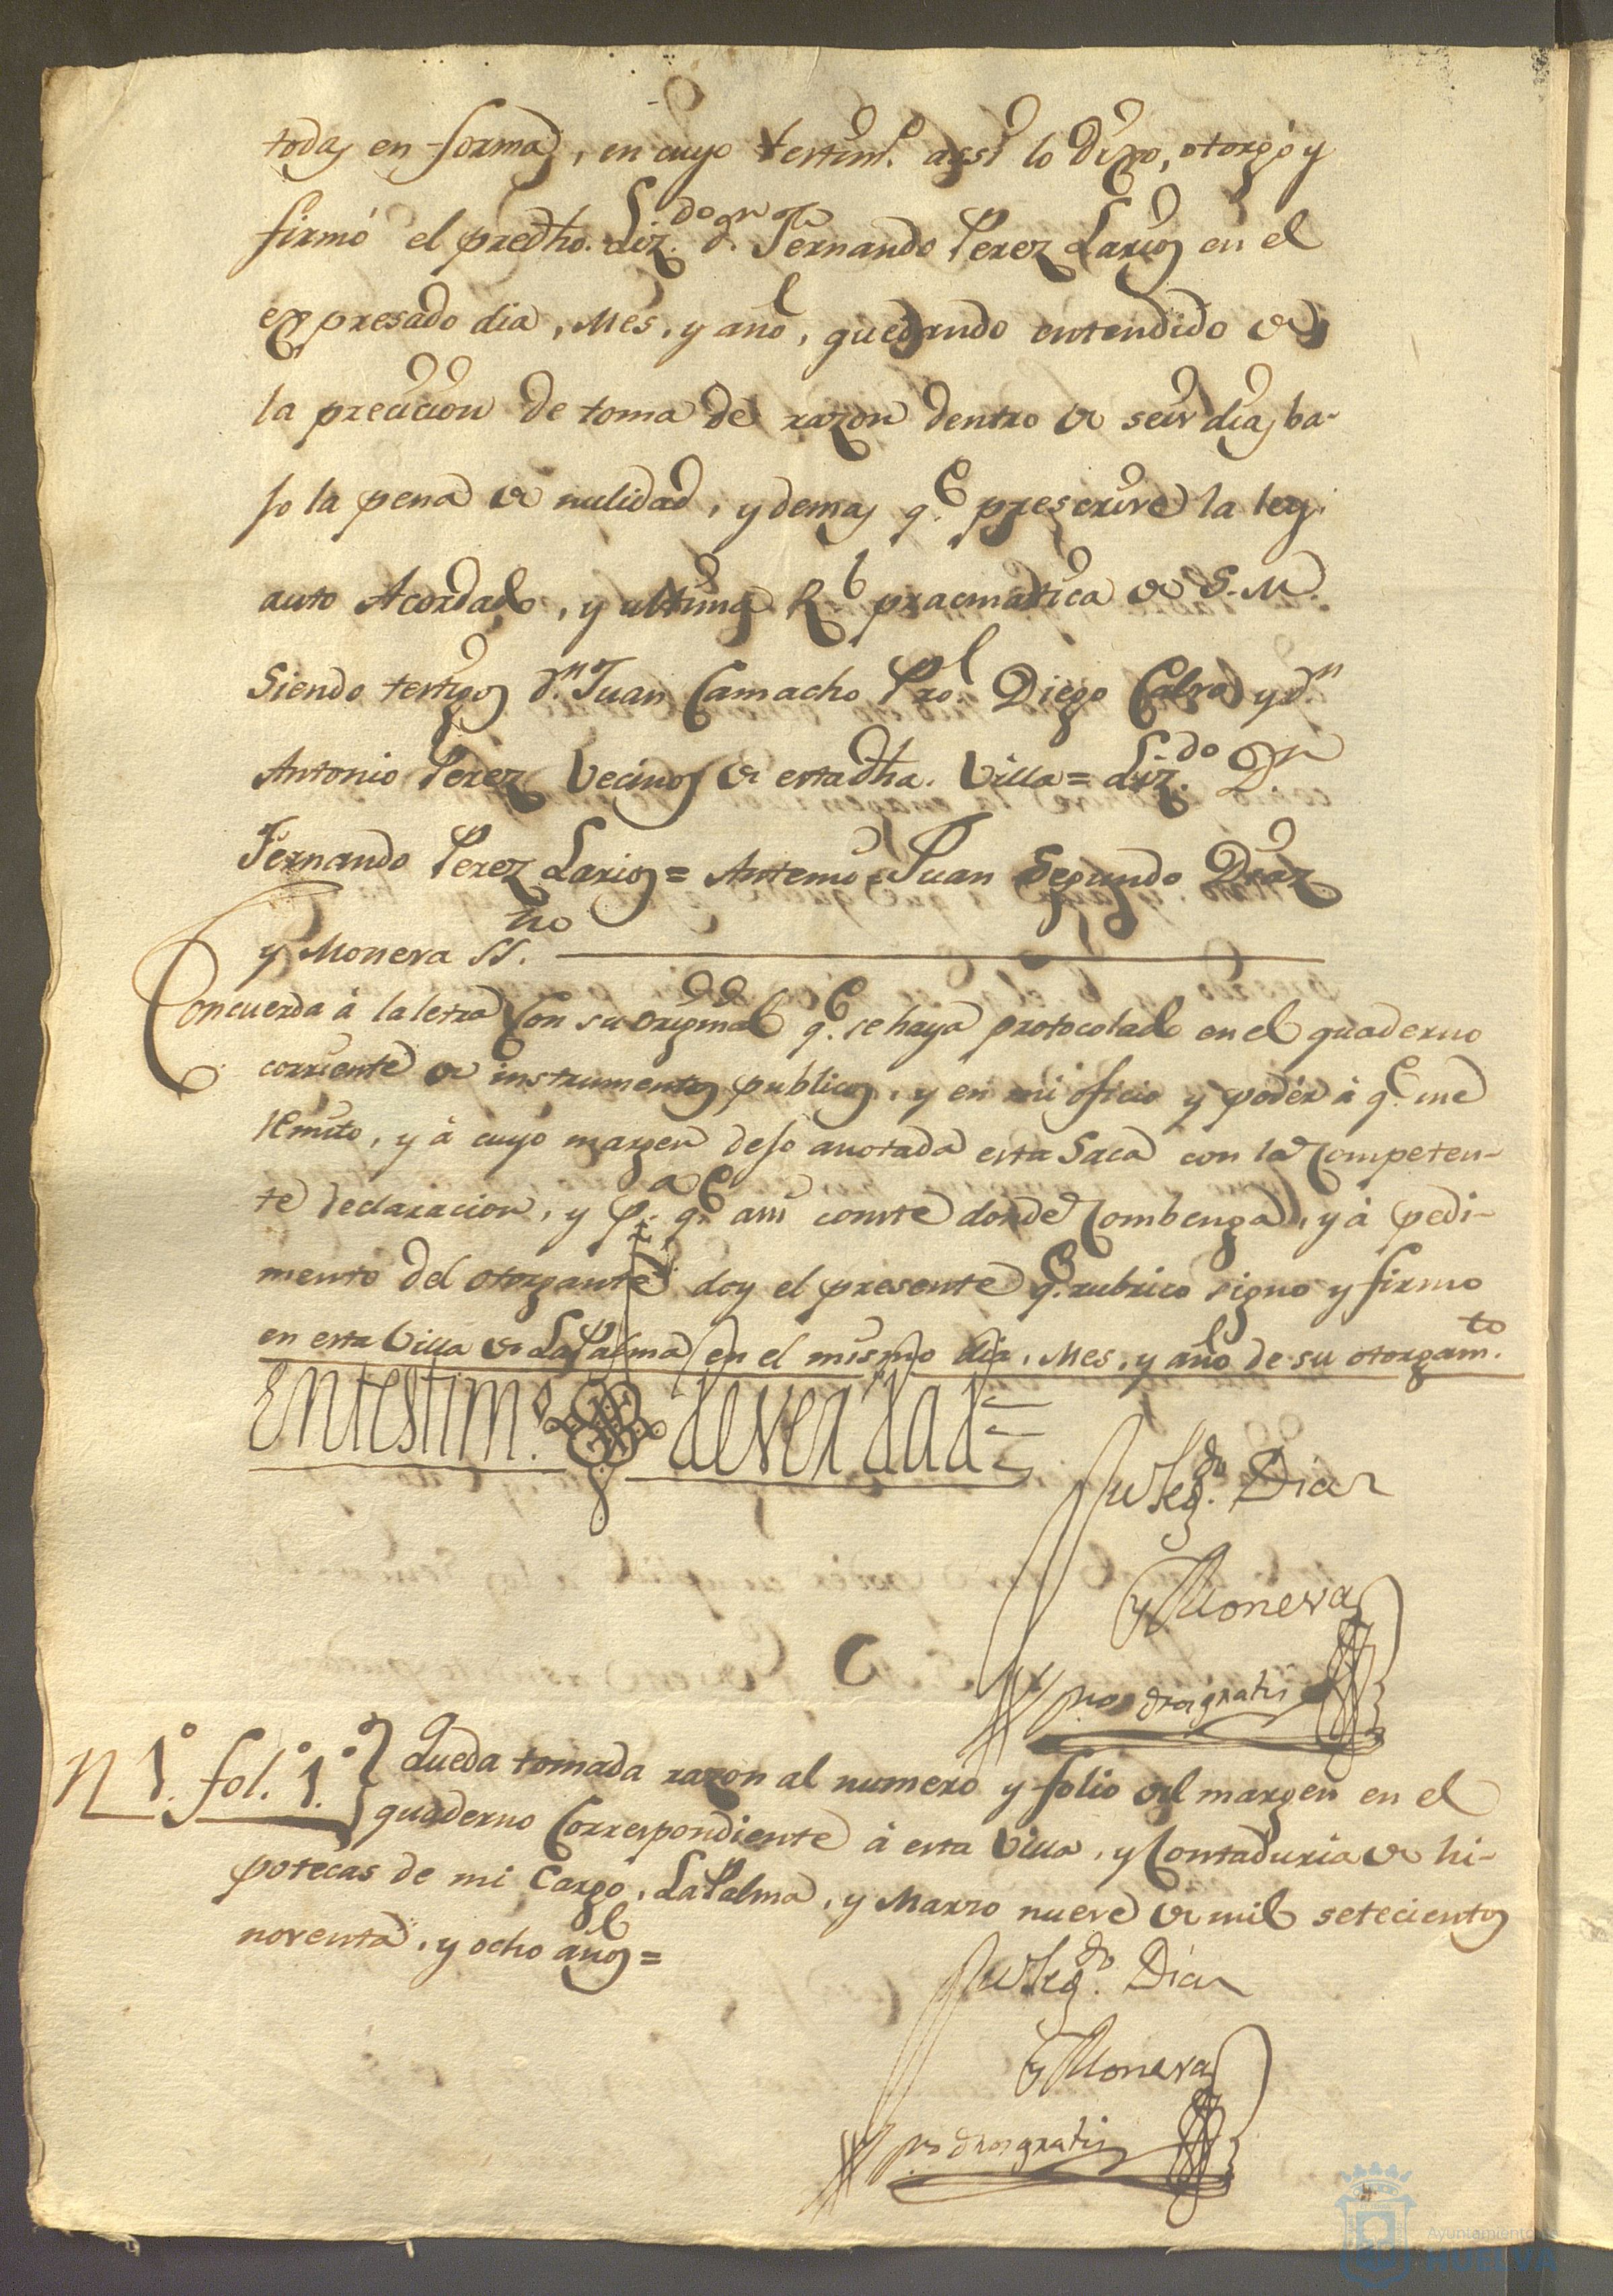 todas en forma, en cuyo testim.º assi lo dixo, otorgó y
firmó el predho. Liz.do d.n Fernando Perez Larios en el
expresado dia, Mes, y año, quedando entendido de
la precicion de toma de razon dentro de seis dias ba-
jo la pena de nulidad, y demas q.e prescrive la ley
auto Acordado, y ultima R.l pracmatica de S. M.
Siendo testigos d.n Juan Camacho Pro. Diego Calvo y d.n
Antonio Perez Vecinos de esta dha. Villa = Liz.do D.n
Fernando Perez Larios = Antemi Juan Segundo Diaz
y Moneva SS.no
Concuerda à la letra Con su original q.e se haya protocolado en el quaderno
corriente de instrumentos publicos, y en mi oficio y podér à q.e me
remito, y à cuyo margen dejo anotada esta Saca con la Competen-
te declaracion, y p.a q.e assi conste donde Combenga, y à pedi-
mento del otorgante doy el presente q.e rubrico signo y firmo
en esta Villa de La Palma en el mismo dia, Mes, y año de su otorgam.to
En testim.º de verdad
Ju.n Seg.do Diaz
y Moneva
ños dros gratis
N 1.º fol. 1.º Queda tomada razon al numero y folio del margen en el
quaderno Correspondiente à esta Villa, y Contaduria de hi-
potecas de mi Cargo, La Palma, y Marzo nueve de mil setecientos
noventa, y ocho años =
Ju.n Seg.do Diaz
y Moneva
dros gratis
Ayuntamiento
HUELVA